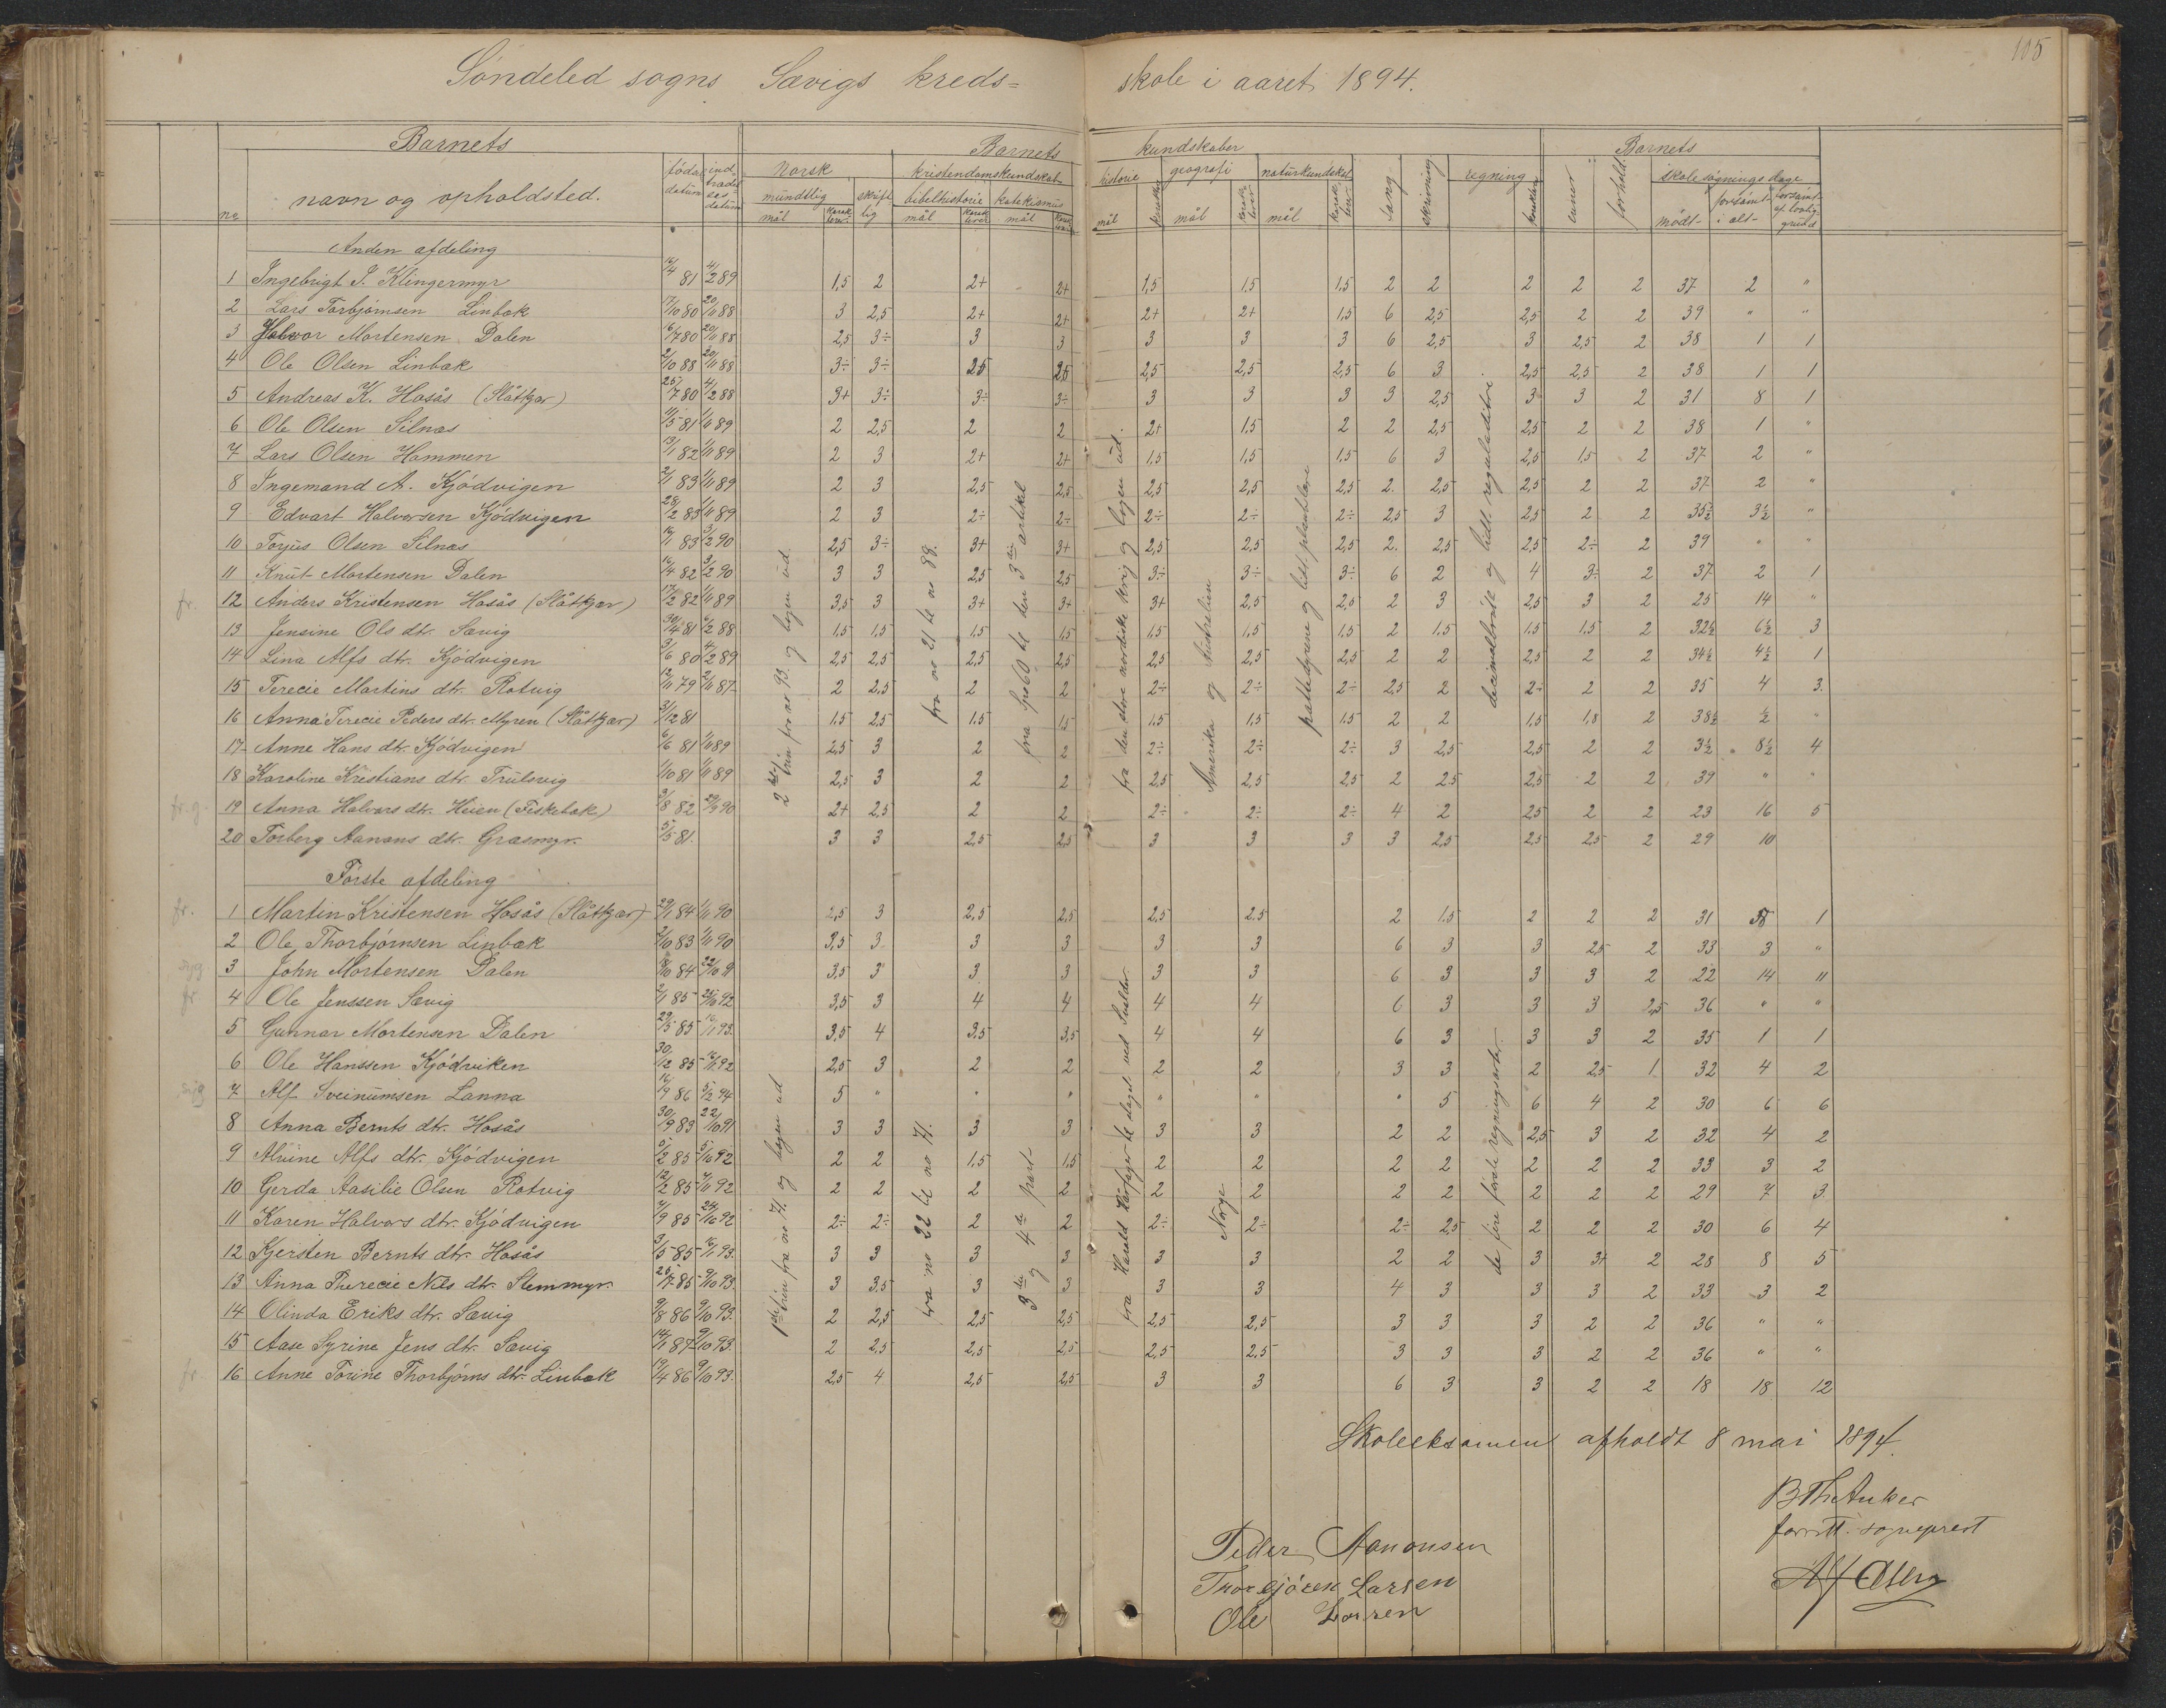 105
Söndeled sogns Sævigs kreds= skole i aaret 1894.
Barnets Barnets kundskaber Barnets
no navn og opholdsted. föds datum ind trædel ses datum Norsk kristendomskundskab historie geografi naturkundskab sang skrivning regning evner forhold skolesögnings dage
mündtlig skrift lig bibelhistorie katekismus mödt forsömt i alt forsömt af lovlig grund
mål karak terer mål karak terer mål karak terer mål karakter mål karak terer mål karak terer karakter
Anden afdeling
1 Ingebrigt I. Klingermyr 16/4 81 4/2 89 1,5 2 2+ 2+ 1,5 1,5 1,5 2 2 2 2 2 37 2 "
2 Lars Torbjørnsen Linbæk 17/10 80 20/11 88 3 2,5 2+ 2+ 2+ 2+ 1,5 6 2,5 2,5 2 2 39 " "
3 Halvor Mortensen Dalen 16/7 80 20/11 88 2,5 3÷ 3 3 3 3 3 6 2,5 3 2,5 2 38 1 1
4 Ole Olsen Linbæk 2/10 88 20/11 88 3÷ 3÷ 2,5 2,5 2,5 2,5 2,5 6 3 2,5 2,5 2 38 1 1
5 Andreas K. Hosås (Slåtkjær) 25/7 80 4/2 88 3+ 3÷ 3÷ 3÷ 3 3 3 3 2,5 3 3 2 31 8 1
6 Ole Olsen Silnæs 11/5 81 1/11 89 2 2,5 2 2 2+ 1,5 2 2 2,5 2,5 2 2 38 1 "
7 Lars Olsen Hammen 13/1 82 1/11 89 2 3 2+ 2+ 1,5 1,5 1,5 6 3 2,5 1,5 2 37 2 "
8 Ingemand A. Kjödvigen 2/1 83 1/11 89 2 3 2,5 2,5 2,5 2,5 2,5 2. 2,5 2,5 2 2 37 2 "
9 Edvart Halvorsen Kjödvigen 28/2 83 1/11 89 2 3 2÷ 2÷ 2÷ 2÷ 2÷ 2,5 3 2,5 2 2 35½ 3½ "
10 Torjus Olsen Silnæs 83 3/2 90 2,5 3÷ 3+ 3+ 2,5 2,5 2,5 2. 2,5 2,5 2÷ 2 39 " "
11 Knut Mortensen Dalen 16/4 82 3/2 90 3 3 2,5 2,5 3÷ 3÷ 3÷ 6 2 4 3÷ 2 37 2 1
fr. 12 Anders Kristensen Hosås (Slåtkjær) 17/2 82 1/11 89 3,5 3 3+ 3+ 3+ 2,5 2,5 2 3 2,5 3 2 25 14 "
13 Jensine Ols dtr. Sævig 30/4 81 2 88 1,5 1,5 1,5 1,5 1,5 1,5 1,5 2 1,5 1,5 1,5 2 32½ 6½ 3
14 Lina Alfs dtr. Kjödvigen 3/6 80 4/2 89 2,5 2,5 2,5 2,5 2,5 2,5 2,5 2 2 2,5 2 2 34½ 4½ 1
15 Terecie Martins dtr. Rotvig 12/11 79 2/11 87 2 2,5 2 2 2÷ 2÷ 2÷ 2,5 2 2÷ 2 2 35 4 3.
16 Anna Terecie Peders dtr. Myren (Slåtkjær) 3/12 81 1,5 2,5 1,5 1,5 1,5 1,5 1,5 2 2 1,5 1,8 2 38½ ½ "
17 Anne Hans dtr. Kjödvigen 6/6 81 1/11 89 2,5 3 2 2 2÷ 2÷ 2÷ 3 2,5 2,5 2 2 3½ 8½ 4
18 Karoline Kristians dtr. Trülsvig 1/10 81 1/11 89 2,5 3 2 2 2,5 2,5 2,5 2 2,5 2,5 2 2 39 " "
fr.g. 19 Anna Halvors dtr. Heien (Fiskebæk) 3/8 82 29/9 90 2+ 2,5 2 2 2÷ 2÷ 2÷ 4 2 2,5 2 2 23 16 5
20 Torberg Aanons dtr. Græsmyr. 5/5 81. 3 3 2,5 2,5 3 3 3 3 2,5 2,5 2,5 2 29 10
2det trin fra no 93. og bogen ud
fra no 21 til no 88.
fra spö 60 til den 3die artikel
fra den store nordiske krig og bogen ud.
Amerika og Australien
pattedyrene og litt plantelære
decimalbrök og lidt reguladetri
Förste afdeling
fr. 1 Martin Kristensen Hosås (Slåtkjær) 29/1 84 1/11 90 2,5 3 2,5 2,5 2,5 2,5 2 1,5 2 2 2 31 8 1
2 Ole Thorbjörnsen Linbæk 2/10 83 1/11 90 3,5 3 3 3 3 3 6 3 3 2,5 2 33 3 "
syg 3 John Mortensen Dalen 18/10 84 22/10 91 3,5 3 3 3 3 3 6 3 3 3 2 22 14 11
fr 4 Ole Jenssen Sævig 2/1 85 24/10 92 3,5 3 4 4 4 4 6 3 3 3 2,5 36 " "
5 Gunnar Mortensen Dalen 29/5 85 16/1 93. 3,5 4 3,5 3,5 4 4 6 3 3 3 2 35 1 1
6 Ole Hanssen Kjödviken 30/12 85 92 2,5 3 2 2 2 2 3 3 2 2,5 1 32 4 2
7 Alf Sveinumsen Lanna 16/9 86 5/2 94 5 " " " " " " 5 6 4 2 30 6 6
8 Anna Bernts dtr. Hosås 30/9 83 22/10 91 3 3 3 3 3 3 2 2 2,5 3 2 32 4 2
9 Alvine Alfs dtr. Kjödvigen 5/2 85 5/10 92 2 2 1,5 1,5 2 2 2 2 2 2 2 33 3 2
10 Gerda Aasilie Olsen Rotvig 12/2 85 7/11 92 2 2 2 2 2 2 2 2 2 2 2 29 7 3.
11 Karen Halvors dtr. Kjödvigen 4/9 85 24/10 92 2÷ 2÷ 2 2 2÷ 2÷ 2÷ 2,5 2 2 2 30 6 4
12 Kjersten Bernts dtr. Hosås 3/5 85 16/1 93. 3 3 3 3 3 3 2 2 3 3+ 2 28 8 5
13 Anna Therecie Nils dtr. Stemmyr. 25/7 85 9/10 93. 3 3,5 3 3 3 3 4 3 3 3 2 33 3 2
14 Olinda Eriks dtr. Sævig 9/8 86 9/10 93. 2 2,5 2,5 2,5 2,5 2,5 3 3 3 2 2 36 " "
15 Aase Syrine Jens dtr. Sævig 14/1 87 9/10 93. 2 2,5 2,5 2,5 2,5 2,5 3 3 3 2 2 36 " "
fr. 16 Anne Torine Thorbjörns dtr. Linbæk 19/4 86 9/10 93. 2,5 4 2,5 2,5 3 3 6 3 3 2 2 18 18 12
1ste trin fra no 71. og bogen ud
fra no 22 til no 71.
3die og 4de part
fra Harald Hårfager til slaget ved Svolder
Norge
de fire første regningsarter.
Skoleeksamen afholdt 8 mai 1894.
B Th Anker
forr tt. sogneprest
Peder Aanonsen
Thorbjören Larsen
Alf Olsen
Ole Larsen